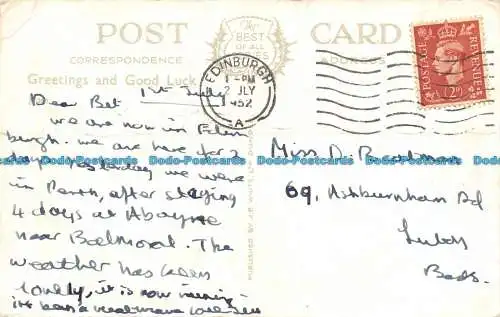 POST CARD
CORRESPONDENCE
ADDRESS
Greetings and Good Luck
The
BEST
OF ALL
SERIES
EDINBURGH
1 - PM
2 JLY
1952
A
POSTAGE
REVENUE
2D
Dear Bet 1st July
we are now in Edin
burgh. we are here for 2
days yesterday we were
in Perth, after staying
4 days at Aboyne
near Balmoral. The
weather has been
lovely, it is now raining
it's been a heatwave
Miss D.
69, Ashburnham Rd
Luton
Beds.
Dodo-Postcards.com Dodo-Postcards.com Dodo-Postcards.com